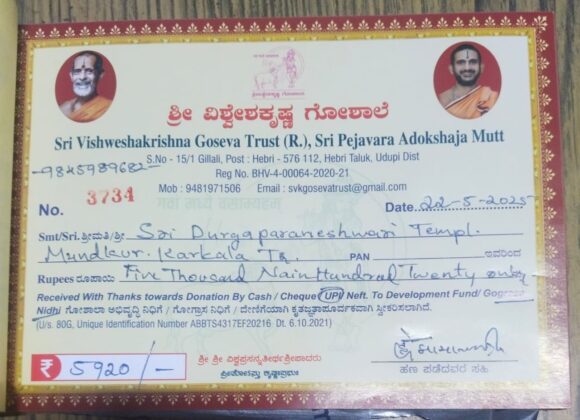 ಶ್ರೀ ವಿಶ್ವೇಶಕೃಷ್ಣ ಗೋಶಾಲೆ
Sri Vishweshakrishna Goseva Trust (R.), Sri Pejavara Adokshaja Mutt
S.No - 15/1 Gillali, Post : Hebri - 576 112, Hebri Taluk, Udupi Dist
-9845989682-
Reg No. BHV-4-00064-2020-21
Mob : 9481971506 Email : svkgosevatrust@gmail.com
No. 3734
Date 22-5-2025
Smt/Sri. ಶ್ರೀಮತಿ/ಶ್ರೀ Sri Durgaparaneshwari Templ.
Mundkur. Karkala Ta. PAN ಇವರಿಂದ
Rupees ರೂಪಾಯಿ Five Thousand Nain Hundred Twenty only
Received With Thanks towards Donation By Cash / Cheque UPI/ Neft. To Development Fund/ Gograsa
Nidhi ಗೋಶಾಲಾ ಅಭಿವೃದ್ಧಿ ನಿಧಿಗೆ / ಗೋಗ್ರಾಸ ನಿಧಿಗೆ / ದೇಣಿಗೆಯಾಗಿ ಕೃತಜ್ಞತಾಪೂರ್ವಕವಾಗಿ ಸ್ವೀಕರಿಸಲಾಗಿದೆ.
(U/s. 80G, Unique Identification Number ABBTS4317EF20216 Dt. 6.10.2021)
₹ 5920/-
ಶ್ರೀ ಶ್ರೀ ವಿಶ್ವಪ್ರಸನ್ನತೀರ್ಥಶ್ರೀಪಾದರು
ಹಣ ಪಡೆದವರ ಸಹಿ